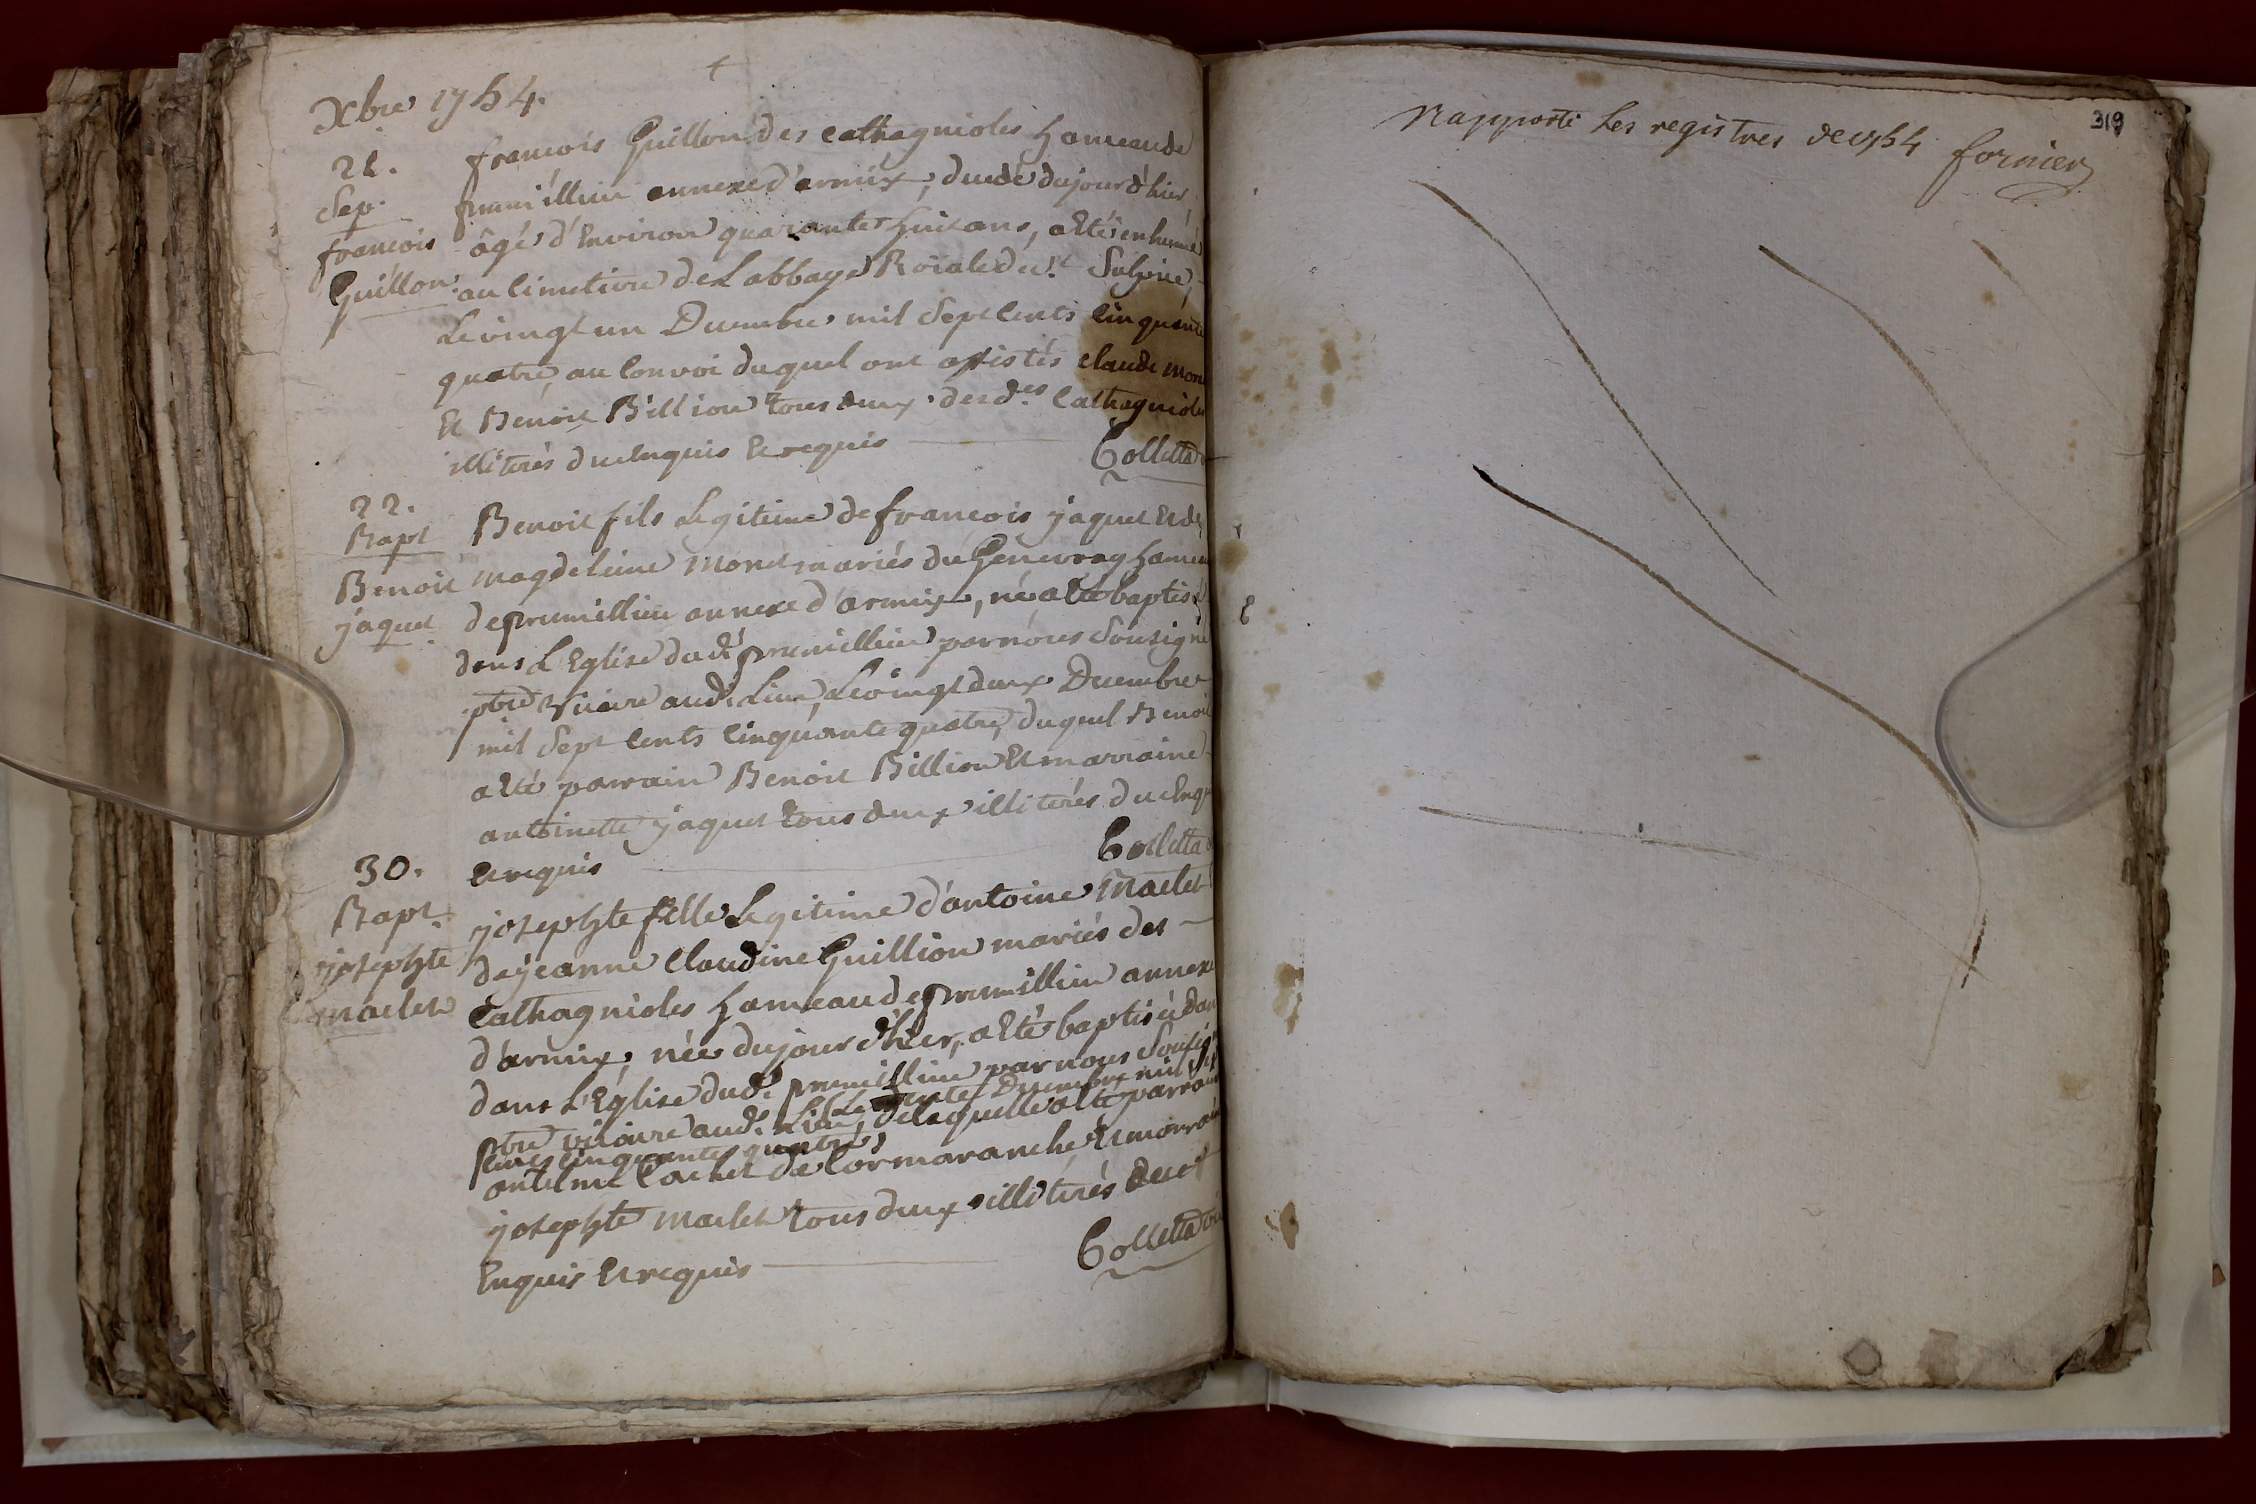 Xbre 1754.
21.
Sep.
francois
Guillon.
francois Guillon des catthagnioles hameau de
prumillieu annexe d'armix, ducdé du jour d'hier
âgé d'Environ quarante huit ans, a Eté enhumé
au Cimetiere de L'abbaye Roiale de st Sulpice,
Le vingt un Decembre mil Sept Cents Cinquante
quatre, au Convoi duquel ont assistés claude mon
Et Benoit Billion tous deux des des Catthagnioles
illiterés duc Enquis Et requis
Colletta
22.
Bapt
Benoit
jaquet
Benoit fils Legitime de francois jaquet Et de
Magdeleine Monet mariés du Genevray hameau
de prumillieu annexe d'armix, né a Eté baptisé
dans L'Eglise dudt prumillieu par nous Sousigné
ptre vicaire audt Lieu, Le vingt deux Decembre
mil Sept Cents Cinquante quatre, duquel Benoit
a Eté parrain Benoit Billion Et marraine
antoinette jaquet tous deux illiterés duc Enq
Et requis
Colletta
30.
Bapt.
josephte
maclet
josephte fille Legitime d'antoine Maclet
de jeanne Claudine Guillion mariés des
Catthagnioles hameau de prumillieu annexe
d'armix, née du jour d'hier, a Eté baptisée dan
dans L'Eglise dudt prumillieu par nous Sousig
Le trente Decembre mil Sept
ptre vicaire audt Lieu, de laquelle a Eté parrain
Cents Cinquante quatre
antelme Cachet de Cormaranche Et marrai
josephte Maclet tous deux illiterés duc
Enquis Et requis
Colletta vic
319
Rapporté Les registres de 1754 fornier